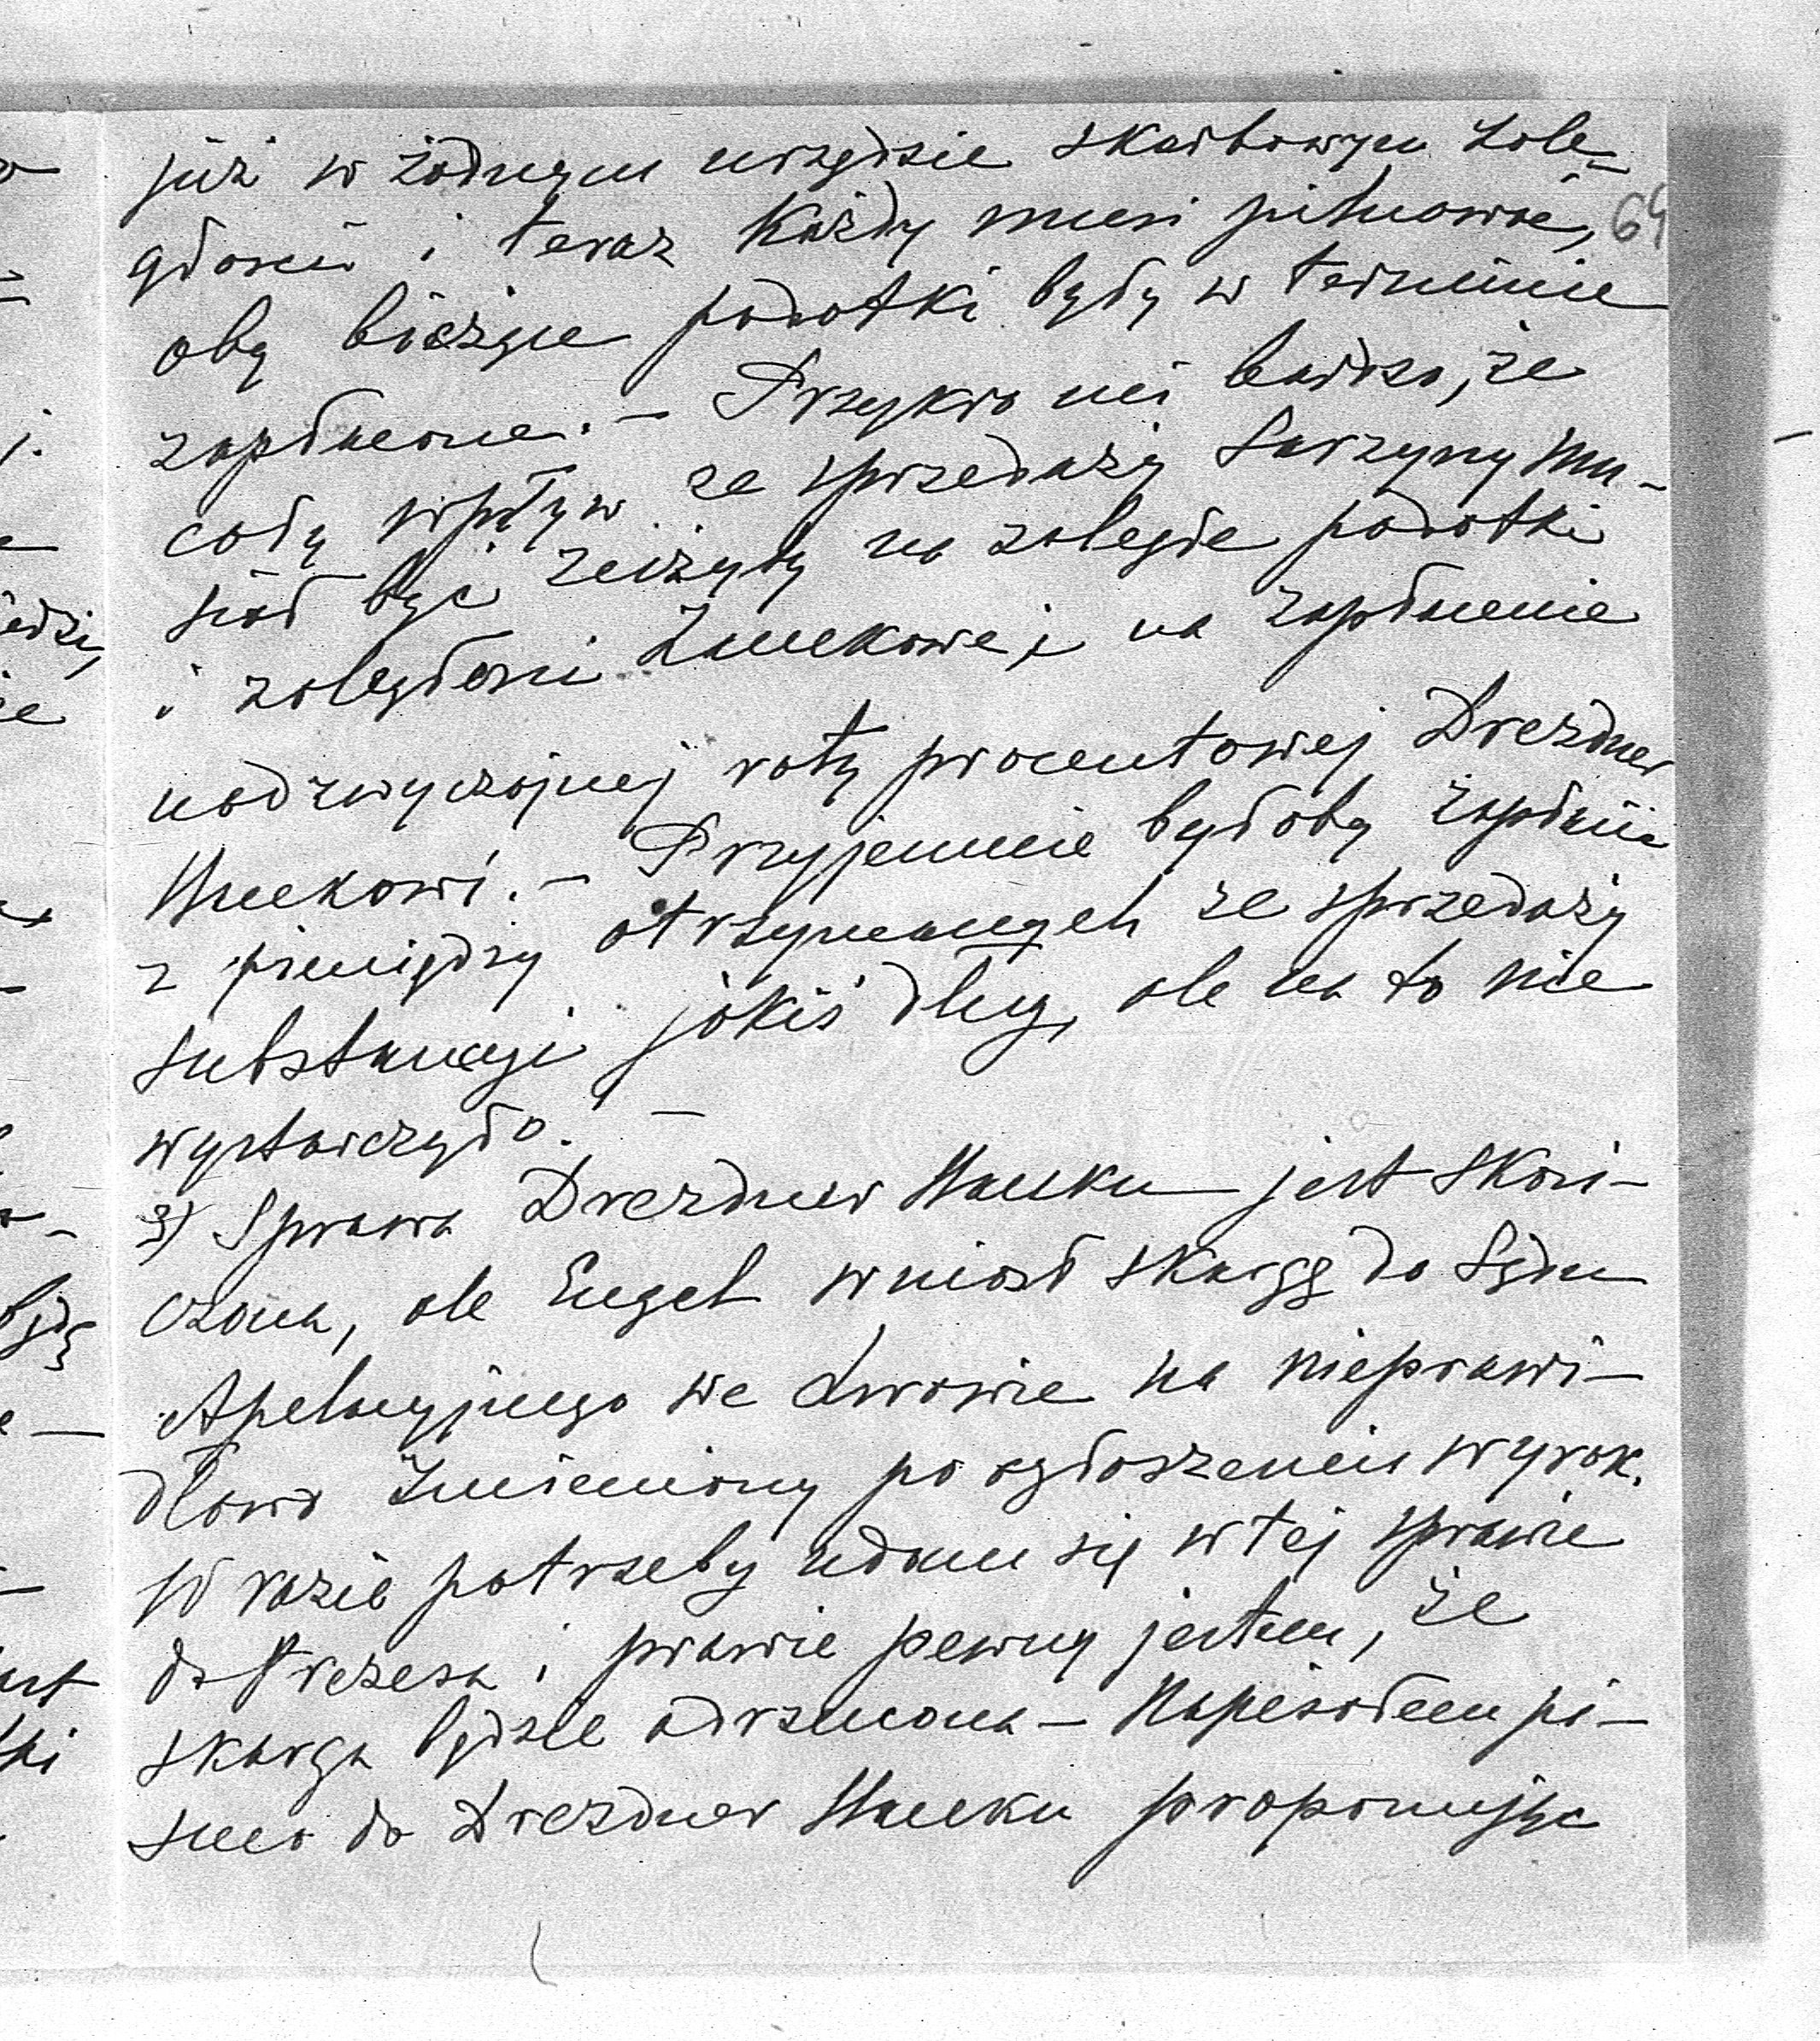 już w żadnym urzędzie skarbowym zale-
głości i teraz każdy musi pilnować, 64
aby bieżące podatki były w terminie
zapłacone. – Przykro mi bardzo, że
cały wpływ ze sprzedaży Sarzyny mu-
siał być zużyty na zaległe podatki
i zaległości i na zapłacenie
nadzwyczajnej raty procentowej Drezdner
Bankowi. – Przyjemnie byłoby zapłacić
z pieniędzy otrzymanych ze sprzedaży
substancyi jakiś dług, ale na to nie
wystarczyło. –
3) Sprawa Drezdner Banku jest skoń-
czona, ale Engel wniósł skargę do Sądu
Apelacyjnego we Lwowie na nieprawi-
dłowo zmieniony po ogłoszeniu wyrok.
W razie potrzeby udam się w tej sprawie
do Prezesa i prawie pewny jestem, że
skarga będzie odrzucona – Napisałem pi-
smo do Drezdner Banku proponując